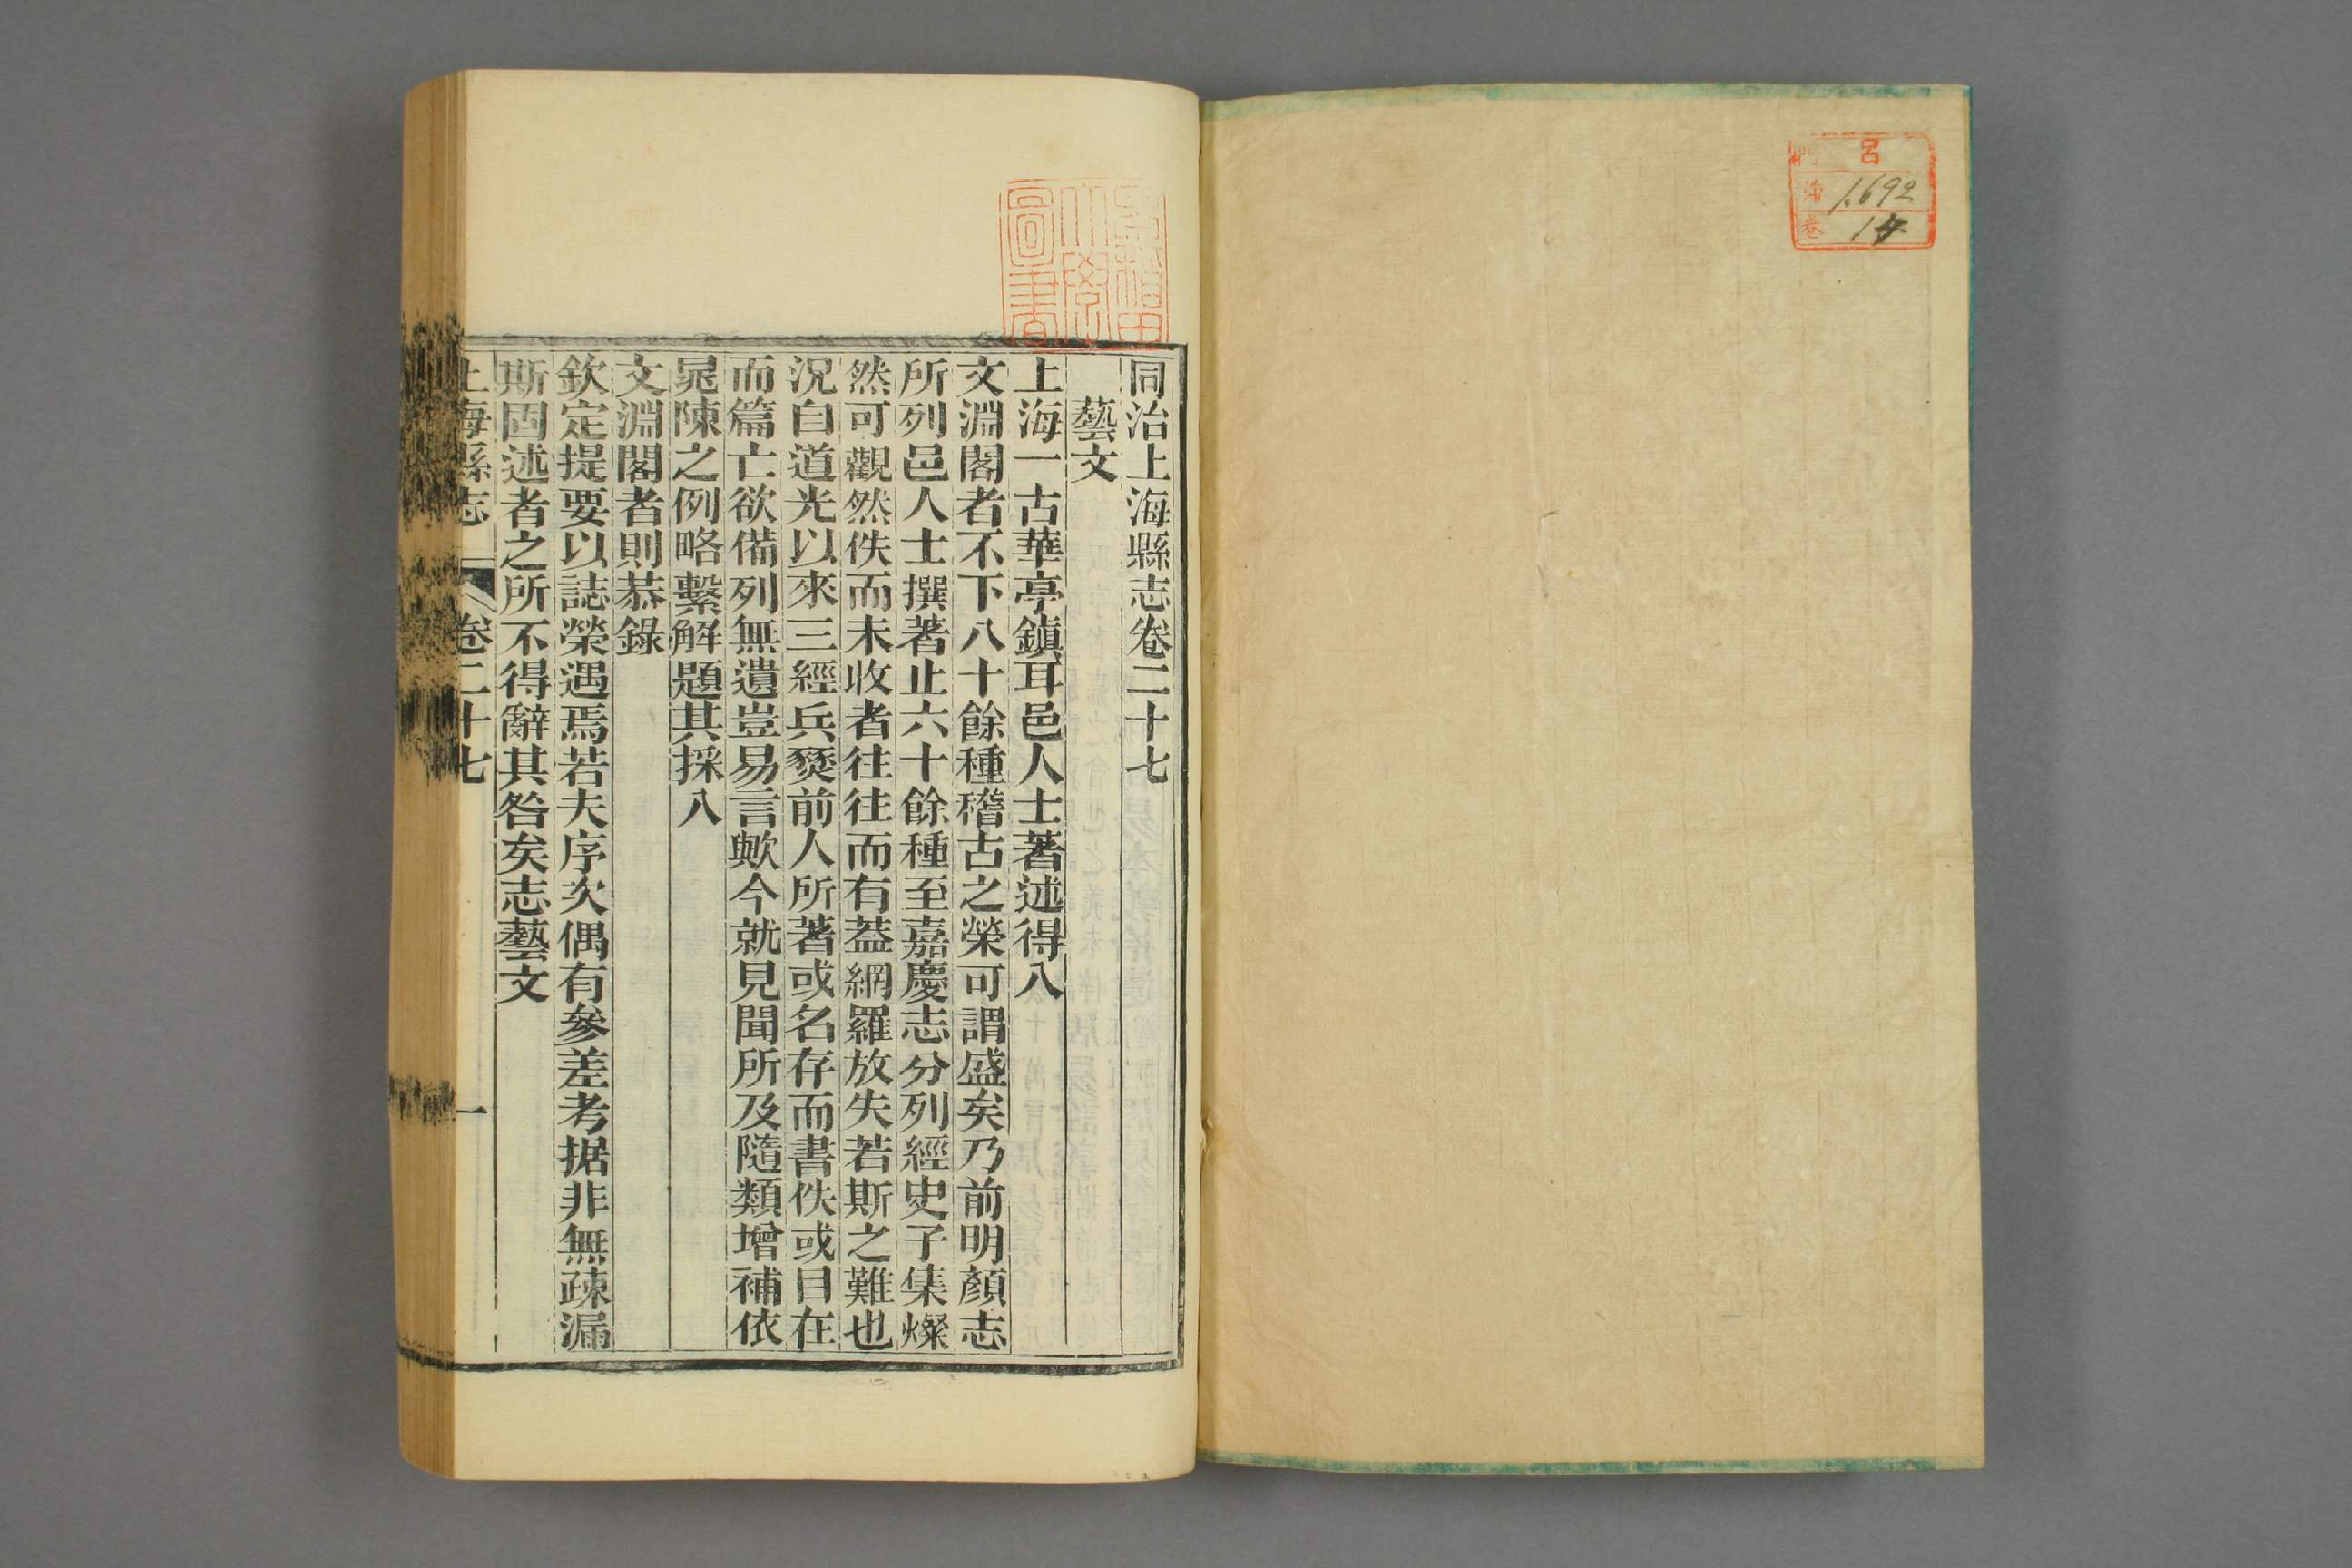 呂
門
號 1692
卷 14
同治上海縣志卷二十七
藝文
上海一古華亭鎮耳邑人士著述得入
文淵閣者不下八十餘種稽古之榮可謂盛矣乃前明顏志
所列邑人士撰著止六十餘種至嘉慶志分列經史子集燦
然可觀然佚而未收者往往而有葢網羅放失若斯之難也
況自道光以來三經兵燹前人所著或名存而書佚或目在
而篇亡欲備列無遺豈易言歟今就見聞所及隨類增補依
晁陳之例略繫解題其採入
文淵閣者則恭錄
欽定提要以誌榮遇焉若夫序次偶有參差考据非無疎漏
斯固述者之所不得辭其咎矣志藝文
上海縣志
卷二十七
一